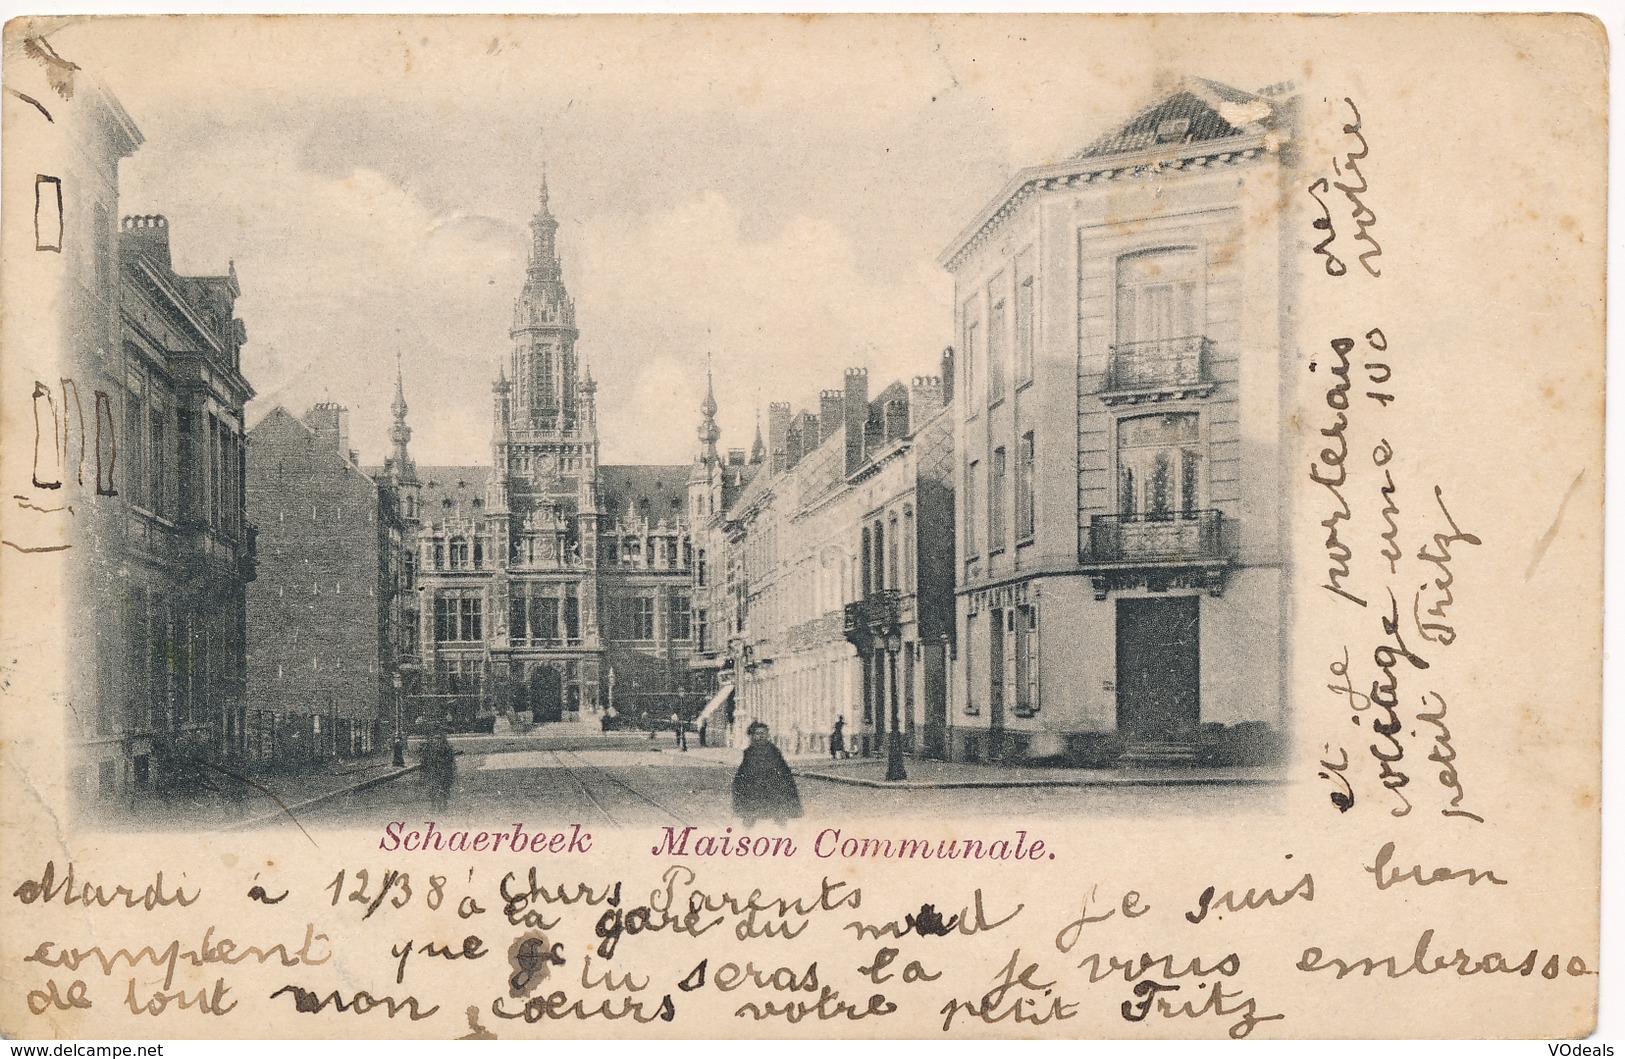 ESTAMINET
Schaerbeek Maison Communale.
Mardi à 12/38 à Chers Parents
la gare du nord je suis bien
complent que je
tu seras la je vous embrasse
de tout mon coeurs votre petit Fritz
et je porterais dés
votre
colliage une 100
petit Fritz
www.delcampe.net
VOdeals